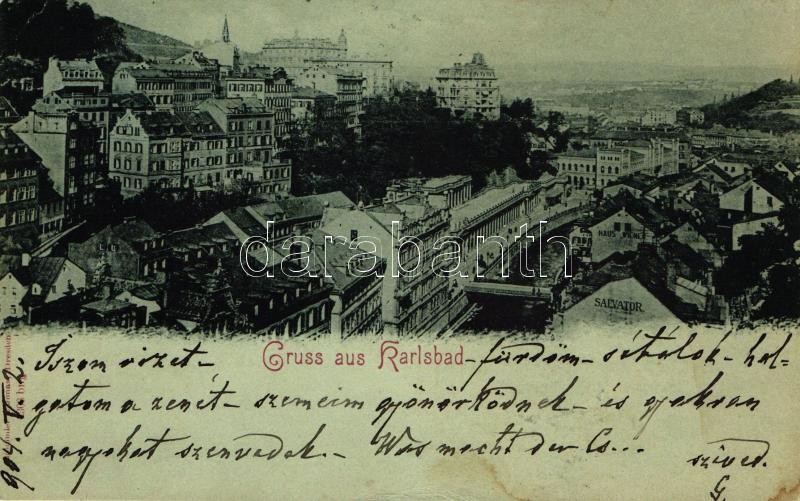 HAUS WILNEY
SALVATOR
darabanth
Gruss aus Karlsbad
904. V 2.
Iszom vizet - fürdöm - sétálok - hal-
gatom a zenét - szemeim gyönörködnek - és gyakran
nagyokat szenvedek. - Was macht der Cs...
szived.
G.